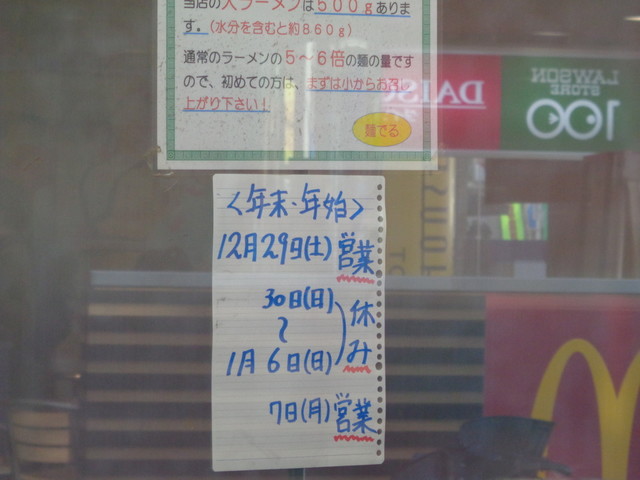 当店の大ラーメンは５００ｇありま
す。(水分を含むと約８６０ｇ)
通常のラーメンの５～６倍の麺の量です
ので、初めての方は、まずは小からお召し
上がり下さい！
麺でる
DAISO
LAWSON
STORE
100
＜年末・年始＞
12月29日(土)営業
30日(日)
～
1月6日(日)
休み
7日(月)営業